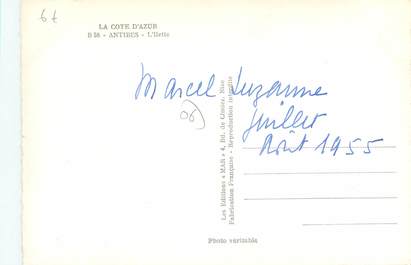 6€
LA COTE D'AZUR
B 56 - ANTIBES - L'Ilette
Marcel Suzanne
06
Juillet
Août 1955
Les Editions « MAR » 4, Bd. de Cimiez, Nice
Fabrication Française - Reproduction interdite
Photo véritable